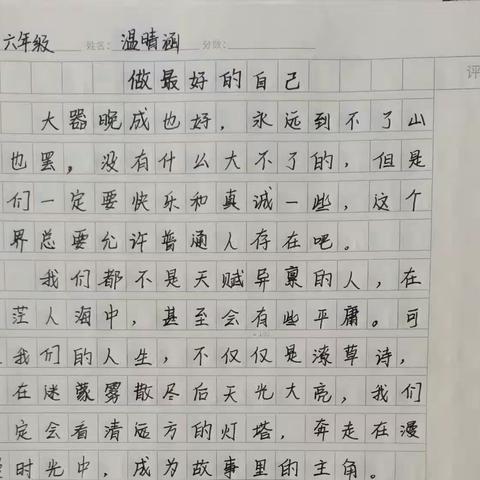 六年级 姓名: 温晴涵 分数:
做最好的自己 评
大器晚成也好，永远到不了山
也罢，没有什么大不了的，但是
们一定要快乐和真诚一些，这个
界总要允许普通人存在吧。
我们都不是天赋异禀的人，在
茫人海中，甚至会有些平庸。可
我们的人生，不仅仅是潦草诗，
在迷蒙雾散尽后天光大亮，我们
定会看清远方的灯塔，奔走在漫
时光中，成为故事里的主角。